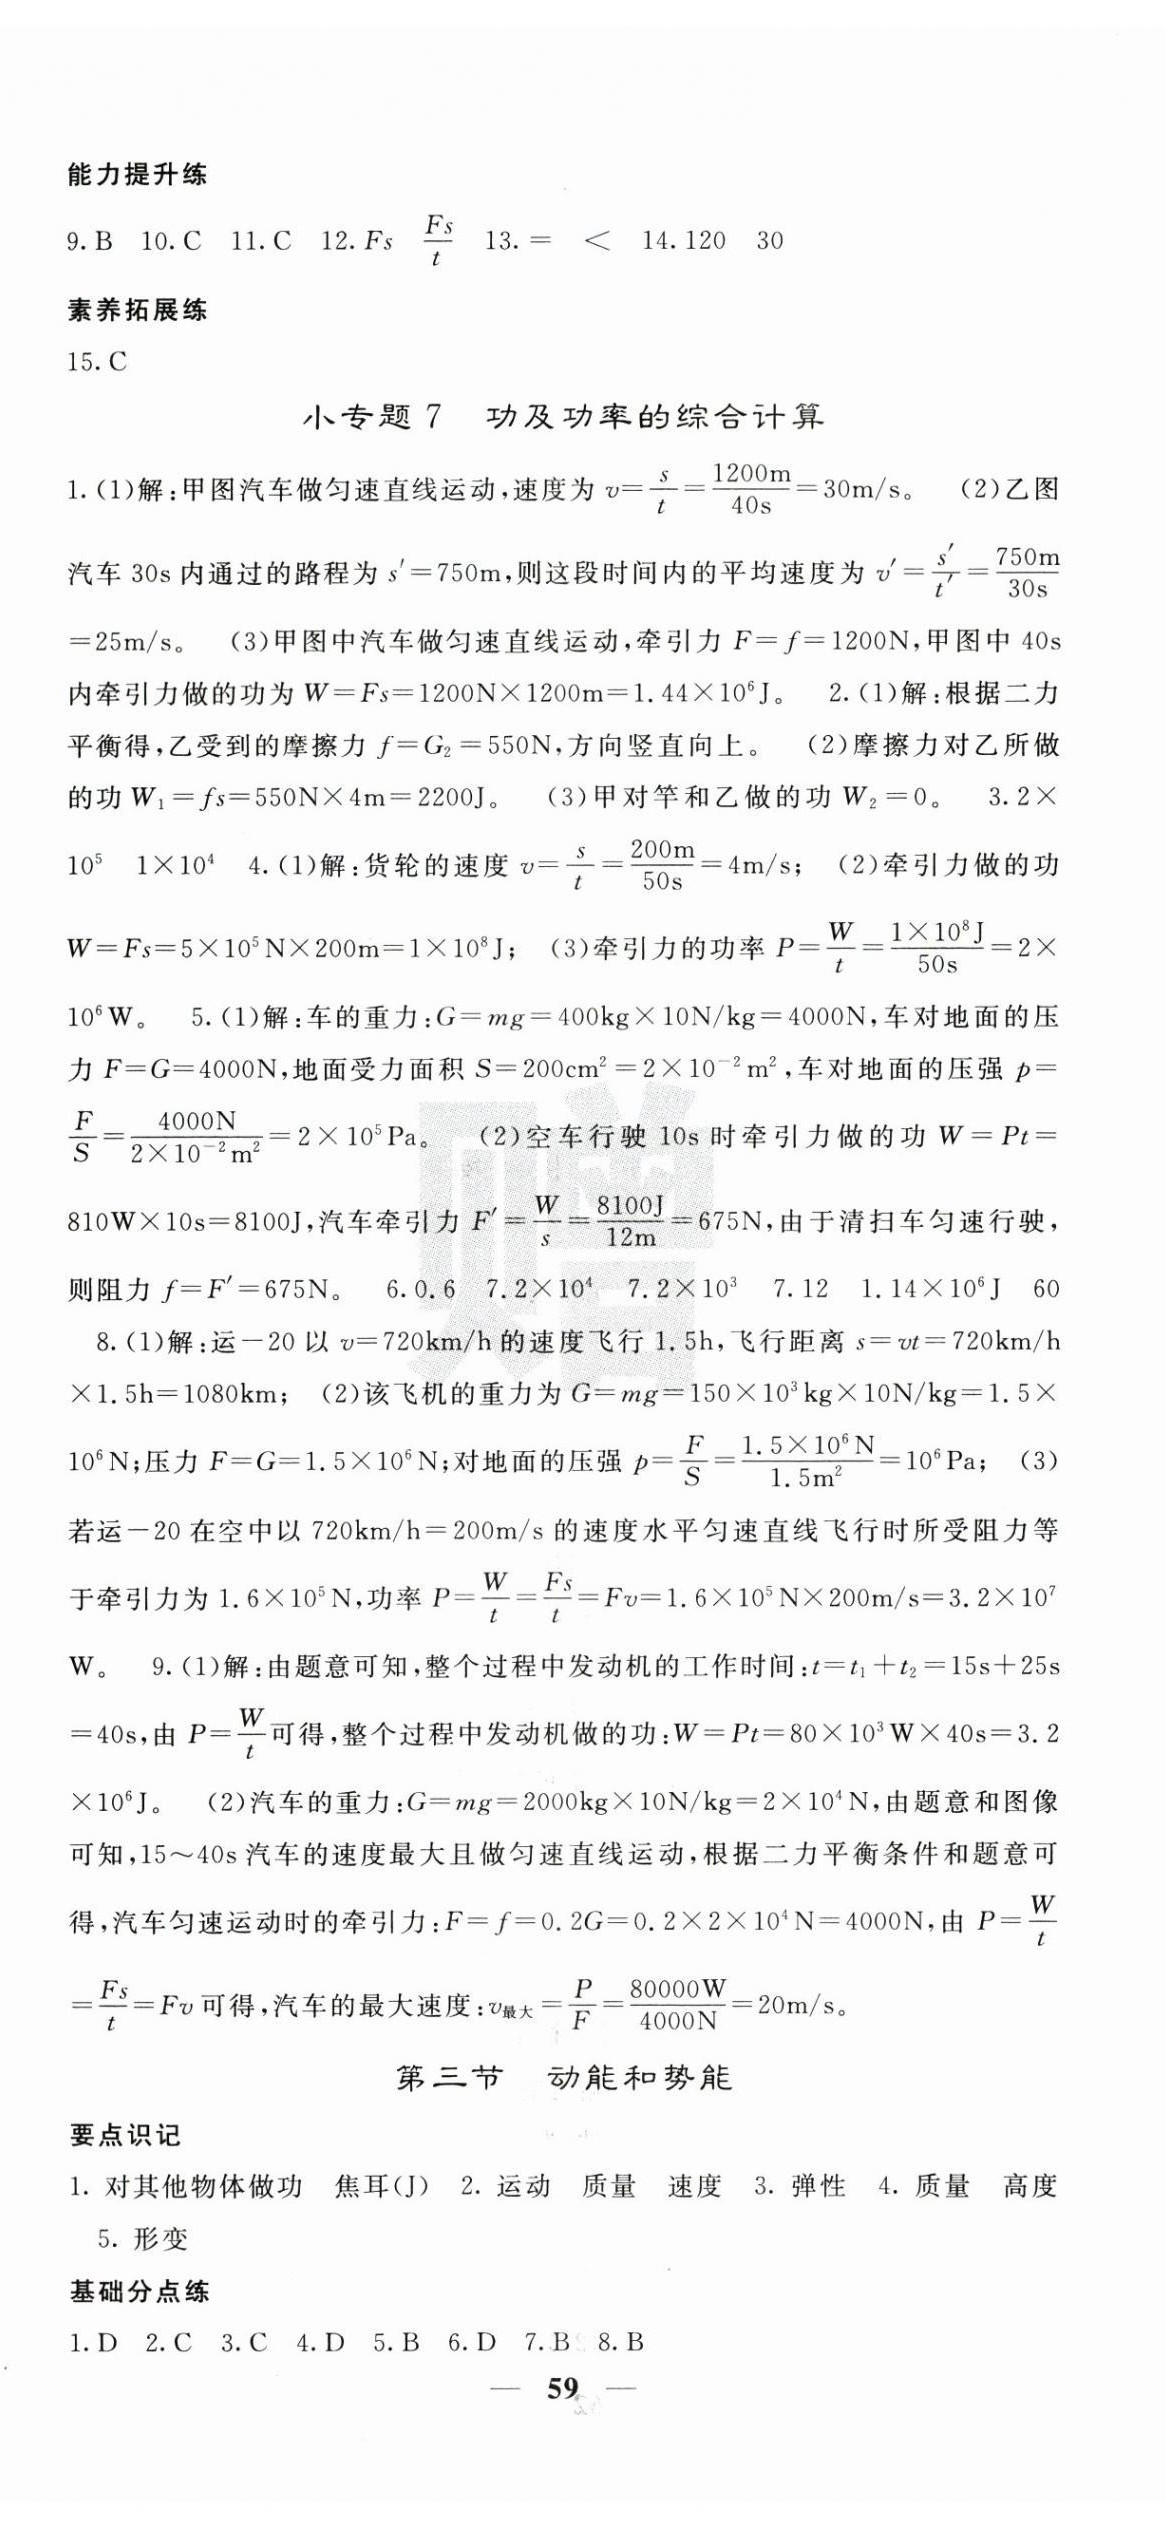 能力提升练
9. B 10. C 11. C 12. Fs Fs/t 13. = < 14. 120 30
素养拓展练
15. C
小专题 7 功及功率的综合计算
1. (1)解:甲图汽车做匀速直线运动,速度为 v=s/t=1200m/40s=30m/s。 (2)乙图
汽车 30s 内通过的路程为 s′=750m,则这段时间内的平均速度为 v′=s′/t′=750m/30s
=25m/s。 (3)甲图中汽车做匀速直线运动,牵引力 F=f=1200N,甲图中 40s
内牵引力做的功为 W=Fs=1200N×1200m=1.44×10⁶J。 2. (1)解:根据二力
平衡得,乙受到的摩擦力 f=G₂=550N,方向竖直向上。 (2)摩擦力对乙所做
的功 W₁=fs=550N×4m=2200J。 (3)甲对竿和乙做的功 W₂=0。 3. 2×
10⁵ 1×10⁴ 4. (1)解:货轮的速度 v=s/t=200m/50s=4m/s; (2)牵引力做的功
W=Fs=5×10⁵N×200m=1×10⁸J; (3)牵引力的功率 P=W/t=1×10⁸J/50s=2×
10⁶W。 5. (1)解:车的重力:G=mg=400kg×10N/kg=4000N,车对地面的压
力 F=G=4000N,地面受力面积 S=200cm²=2×10⁻²m²,车对地面的压强 p=
F/S=4000N/2×10⁻²m²=2×10⁵Pa。 (2)空车行驶 10s 时牵引力做的功 W=Pt=
810W×10s=8100J,汽车牵引力 F′=W/s=8100J/12m=675N,由于清扫车匀速行驶,
则阻力 f=F′=675N。 6. 0.6 7.2×10⁴ 7.2×10³ 7. 12 1.14×10⁶J 60
8. (1)解:运—20 以 v=720km/h 的速度飞行 1.5h,飞行距离 s=vt=720km/h
×1.5h=1080km; (2)该飞机的重力为 G=mg=150×10³kg×10N/kg=1.5×
10⁶N;压力 F=G=1.5×10⁶N;对地面的压强 p=F/S=1.5×10⁶N/1.5m²=10⁶Pa; (3)
若运—20 在空中以 720km/h=200m/s 的速度水平匀速直线飞行时所受阻力等
于牵引力为 1.6×10⁵N,功率 P=W/t=Fs/t=Fv=1.6×10⁵N×200m/s=3.2×10⁷
W。 9. (1)解:由题意可知,整个过程中发动机的工作时间:t=t₁+t₂=15s+25s
=40s,由 P=W/t可得,整个过程中发动机做的功:W=Pt=80×10³W×40s=3.2
×10⁶J。 (2)汽车的重力:G=mg=2000kg×10N/kg=2×10⁴N,由题意和图像
可知,15～40s 汽车的速度最大且做匀速直线运动,根据二力平衡条件和题意可
得,汽车匀速运动时的牵引力:F=f=0.2G=0.2×2×10⁴N=4000N,由 P=W/t
=Fs/t=Fv 可得,汽车的最大速度:v最大=P/F=80000W/4000N=20m/s。
第三节 动能和势能
要点识记
1. 对其他物体做功 焦耳(J) 2. 运动 质量 速度 3. 弹性 4. 质量 高度
5. 形变
基础分点练
1. D 2. C 3. C 4. D 5. B 6. D 7. B 8. B
— 59 —